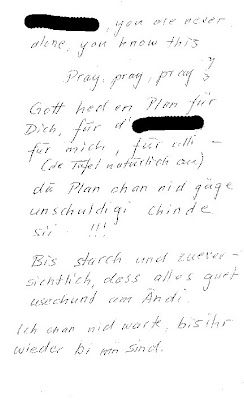 , you are never
alone, you know this
Pray, pray, pray !
Gott hed en Plan für
Dich, für d'
für mich, für ulli -
(de Tüfel natürlich au)
dä Plan chan nid gäge
unschuldigi Chinde
sii !!!
Bis starch und zuever-
sichtlich, dass alles guet
usechund am Ändi.
Ich chan nid warte, bis ihr
wieder bi mir sind.